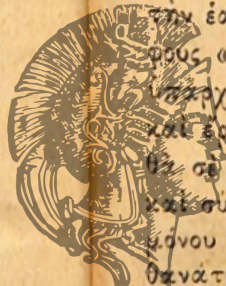 τὴν ἑα
φρυς «
ὑπάρχ
καὶ ἔρ
θὰ σὲ
καὶ σύ
μόνου
θανάτ